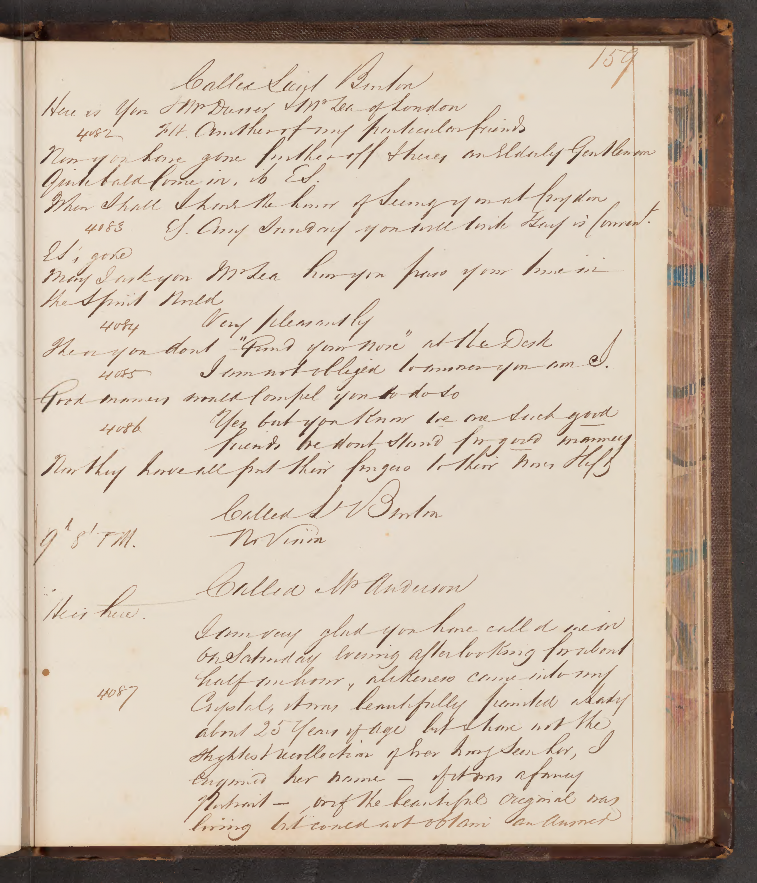 159
Called Lieut Burton
Here is You & Mr & Mr Lea of London
4082 F.H. Another of my particular friends
Now you have gone further off & here's an Elderly Gentleman
Quite bald Come in. to ES.
When Shall I have the honor of Seeing you at Croydon
4083 ES. Any Sunday you will write Gay is Convent.
ES's gone
May I ask you Mr Lea how you pass your time in
the Spirit World
4084 Very pleasantly
Then you dont "Grind your nose" at the Desk
4085 I am not obliged to answer you am I.
Good manners would Compel you to do so
4086 Yes but you Know we are Such good
friends we dont Stand for good manners
Now they have all put their fingers to their noses &
Called Lt Burton
9h 8' P.M. No Vision
Called Mr Anderson
He is here.
I am very glad you have called me in
On Saturday Evening after looking for about
half an hour, a likeness came into my
4087 Crystal, it was beautifully painted a lady
about 25 Years of age but I have not the
slightest recollection of Ever having Seen her, I
Enquired her name — if it was a fancy
Portrait — or if the beautiful original was
living but could not obtain an answer